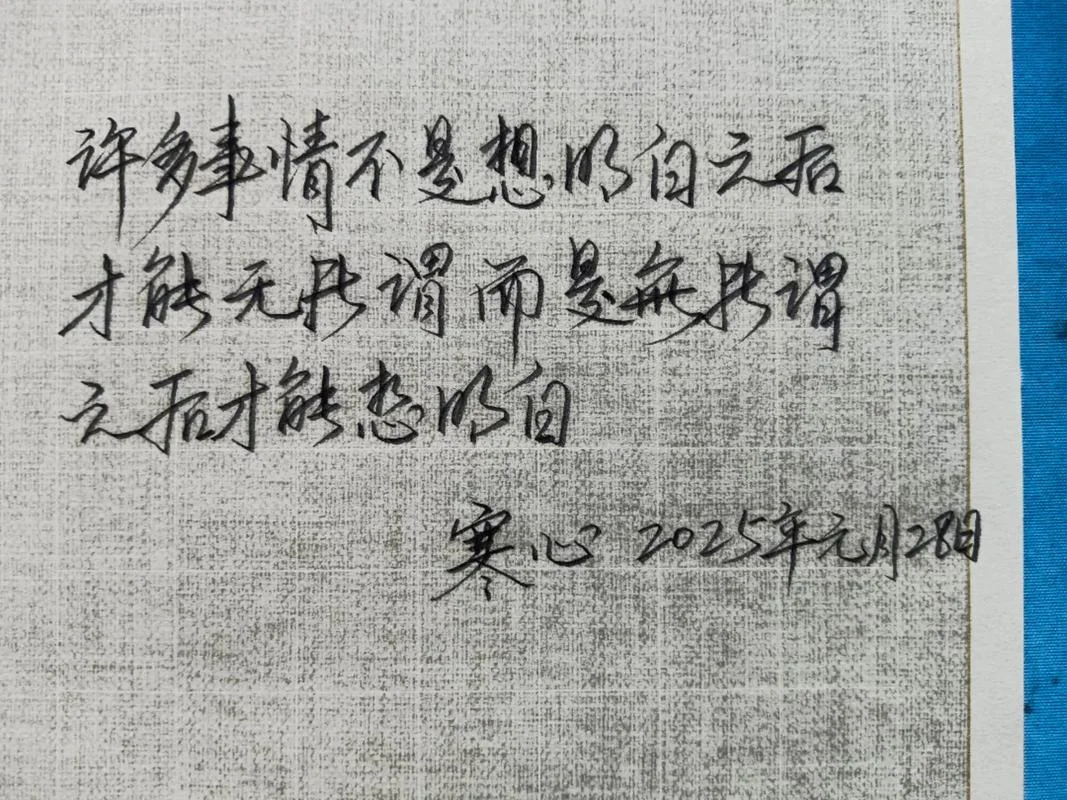 许多事情不是想明白之后
才能无所谓而是無所谓
之后才能想明白
寒心 2025年元月28日